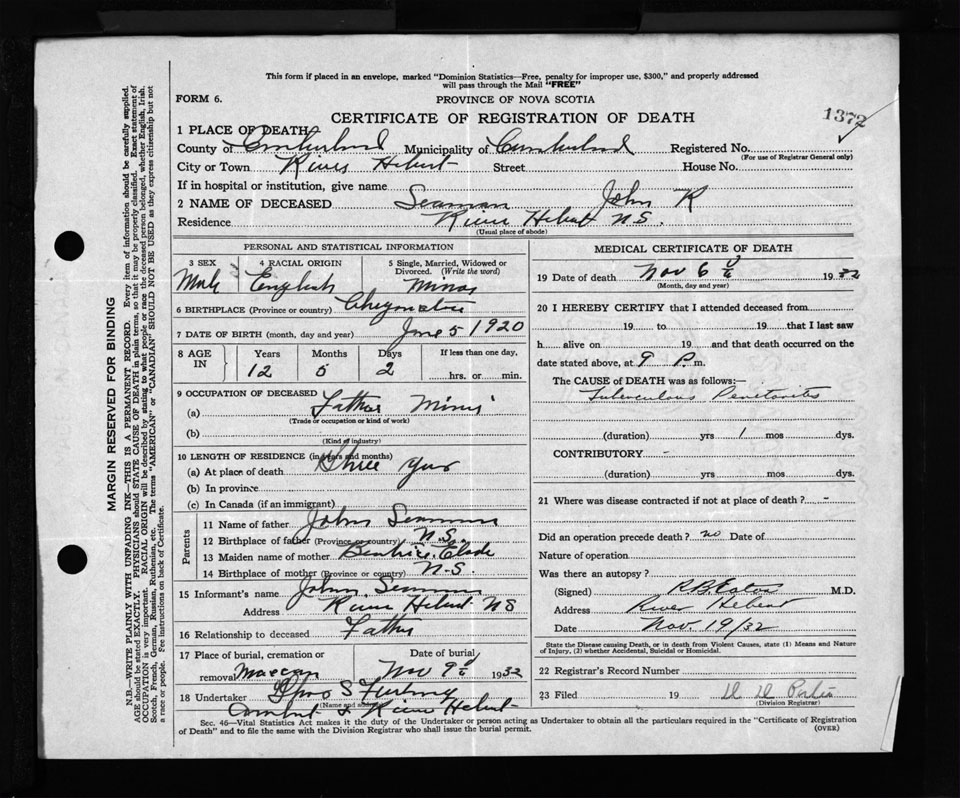 This form if placed in an envelope, marked "Dominion Statistics—Free, penalty for improper use, $300," and properly addressed
will pass through the Mail "FREE"
FORM 6.
PROVINCE OF NOVA SCOTIA
1372
CERTIFICATE OF REGISTRATION OF DEATH
1 PLACE OF DEATH
County of Cumberland Municipality of Cumberland Registered No.
(For use of Registrar General only)
City or Town River Hebert Street House No.
If in hospital or institution, give name
2 NAME OF DECEASED Seaman John R
Residence River Hebert N.S.
(Usual place of abode)
PERSONAL AND STATISTICAL INFORMATION
3 SEX 4 RACIAL ORIGIN 5 Single, Married, Widowed or
Divorced. (Write the word)
Male English Minor
6 BIRTHPLACE (Province or country)
7 DATE OF BIRTH (month, day and year) June 5 1920
8 AGE IN Years Months Days If less than one day,
12 5 2 hrs. or min.
9 OCCUPATION OF DECEASED
(a) Father Miner
(Trade or occupation or kind of work)
(b)
(Kind of industry)
10 LENGTH OF RESIDENCE (in years and months)
(a) At place of death Three yrs
(b) In province
(c) In Canada (if an immigrant)
Parents
11 Name of father John Seaman
12 Birthplace of father (Province or country) N.S.
13 Maiden name of mother Beatrice
14 Birthplace of mother (Province or country) N.S.
15 Informant's name John Seaman
Address River Hebert NS
16 Relationship to deceased Father
17 Place of burial, cremation or Date of burial
removal Maccan Nov 9th 1932
18 Undertaker
(Name and address)
River Hebert
MEDICAL CERTIFICATE OF DEATH
19 Date of death Nov 6th 1932
(Month, day and year)
20 I HEREBY CERTIFY that I attended deceased from
19 to 19 that I last saw
h alive on 19 and that death occurred on the
date stated above, at 9 P. m.
The CAUSE OF DEATH was as follows:—
Tuberculous Peritonitis
(duration) yrs 1 mos dys.
CONTRIBUTORY -
(duration) yrs mos dys.
21 Where was disease contracted if not at place of death? -
Did an operation precede death? no Date of
Nature of operation
Was there an autopsy?
(Signed) R.B. Eaton M.D.
Address River Hebert
Date Nov. 19/32
State the Disease causing Death, or in death from Violent Causes, state (1) Means and Nature
of Injury, (2) whether Accidental, Suicidal or Homicidal.
22 Registrar's Record Number
23 Filed 19
(Division Registrar)
Sec. 46—Vital Statistics Act makes it the duty of the Undertaker or person acting as Undertaker to obtain all the particulars required in the "Certificate of Registration
of Death" and to file the same with the Division Registrar who shall issue the burial permit.
(OVER)
MARGIN RESERVED FOR BINDING
N.B.—WRITE PLAINLY WITH UNFADING INK—THIS IS A PERMANENT RECORD. Every item of information should be carefully supplied.
AGE should be stated EXACTLY. PHYSICIANS should STATE CAUSE OF DEATH in plain terms, so that it may be properly classified. Exact statement of
OCCUPATION is very important. RACIAL ORIGIN will be described by stating to what people or race the deceased person belonged, whether English, Irish,
Scotch, French, German, Russian, Ruthenian, etc. The terms "AMERICAN" or "CANADIAN" SHOULD NOT BE USED as they express citizenship but not
a race or people. See instructions on back of Certificate.